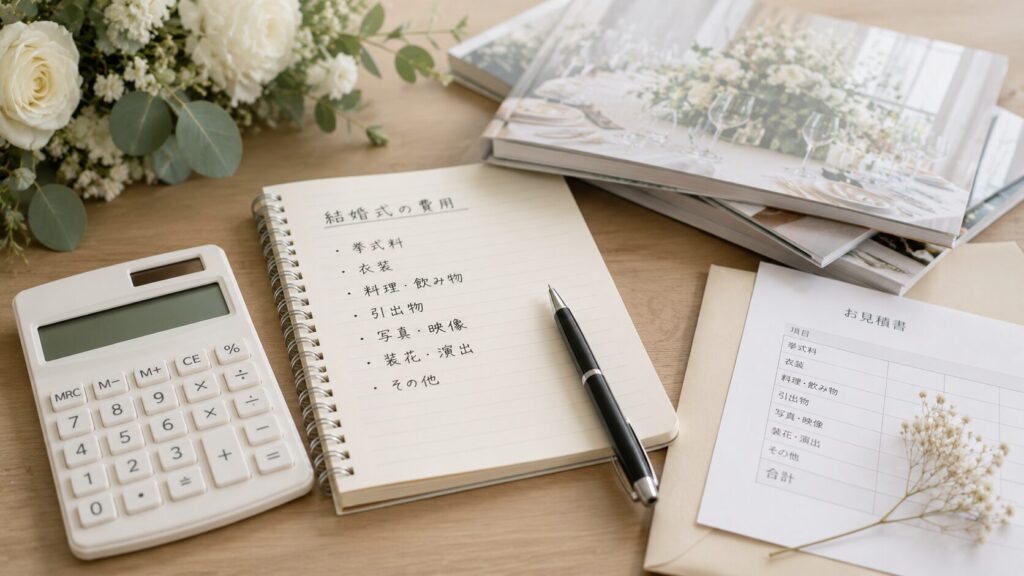 結婚式の費用
・挙式料
・衣装
・料理・飲み物
・引出物
・写真・映像
・装花・演出
・その他
お見積書
項目
挙式料
衣装
料理・飲み物
引出物
写真・映像
装花・演出
その他
合計
MRC M− M+ CE %
7 8 9 × ÷
4 5 6 × ÷
1 2 3 + −
0 · ≐ =